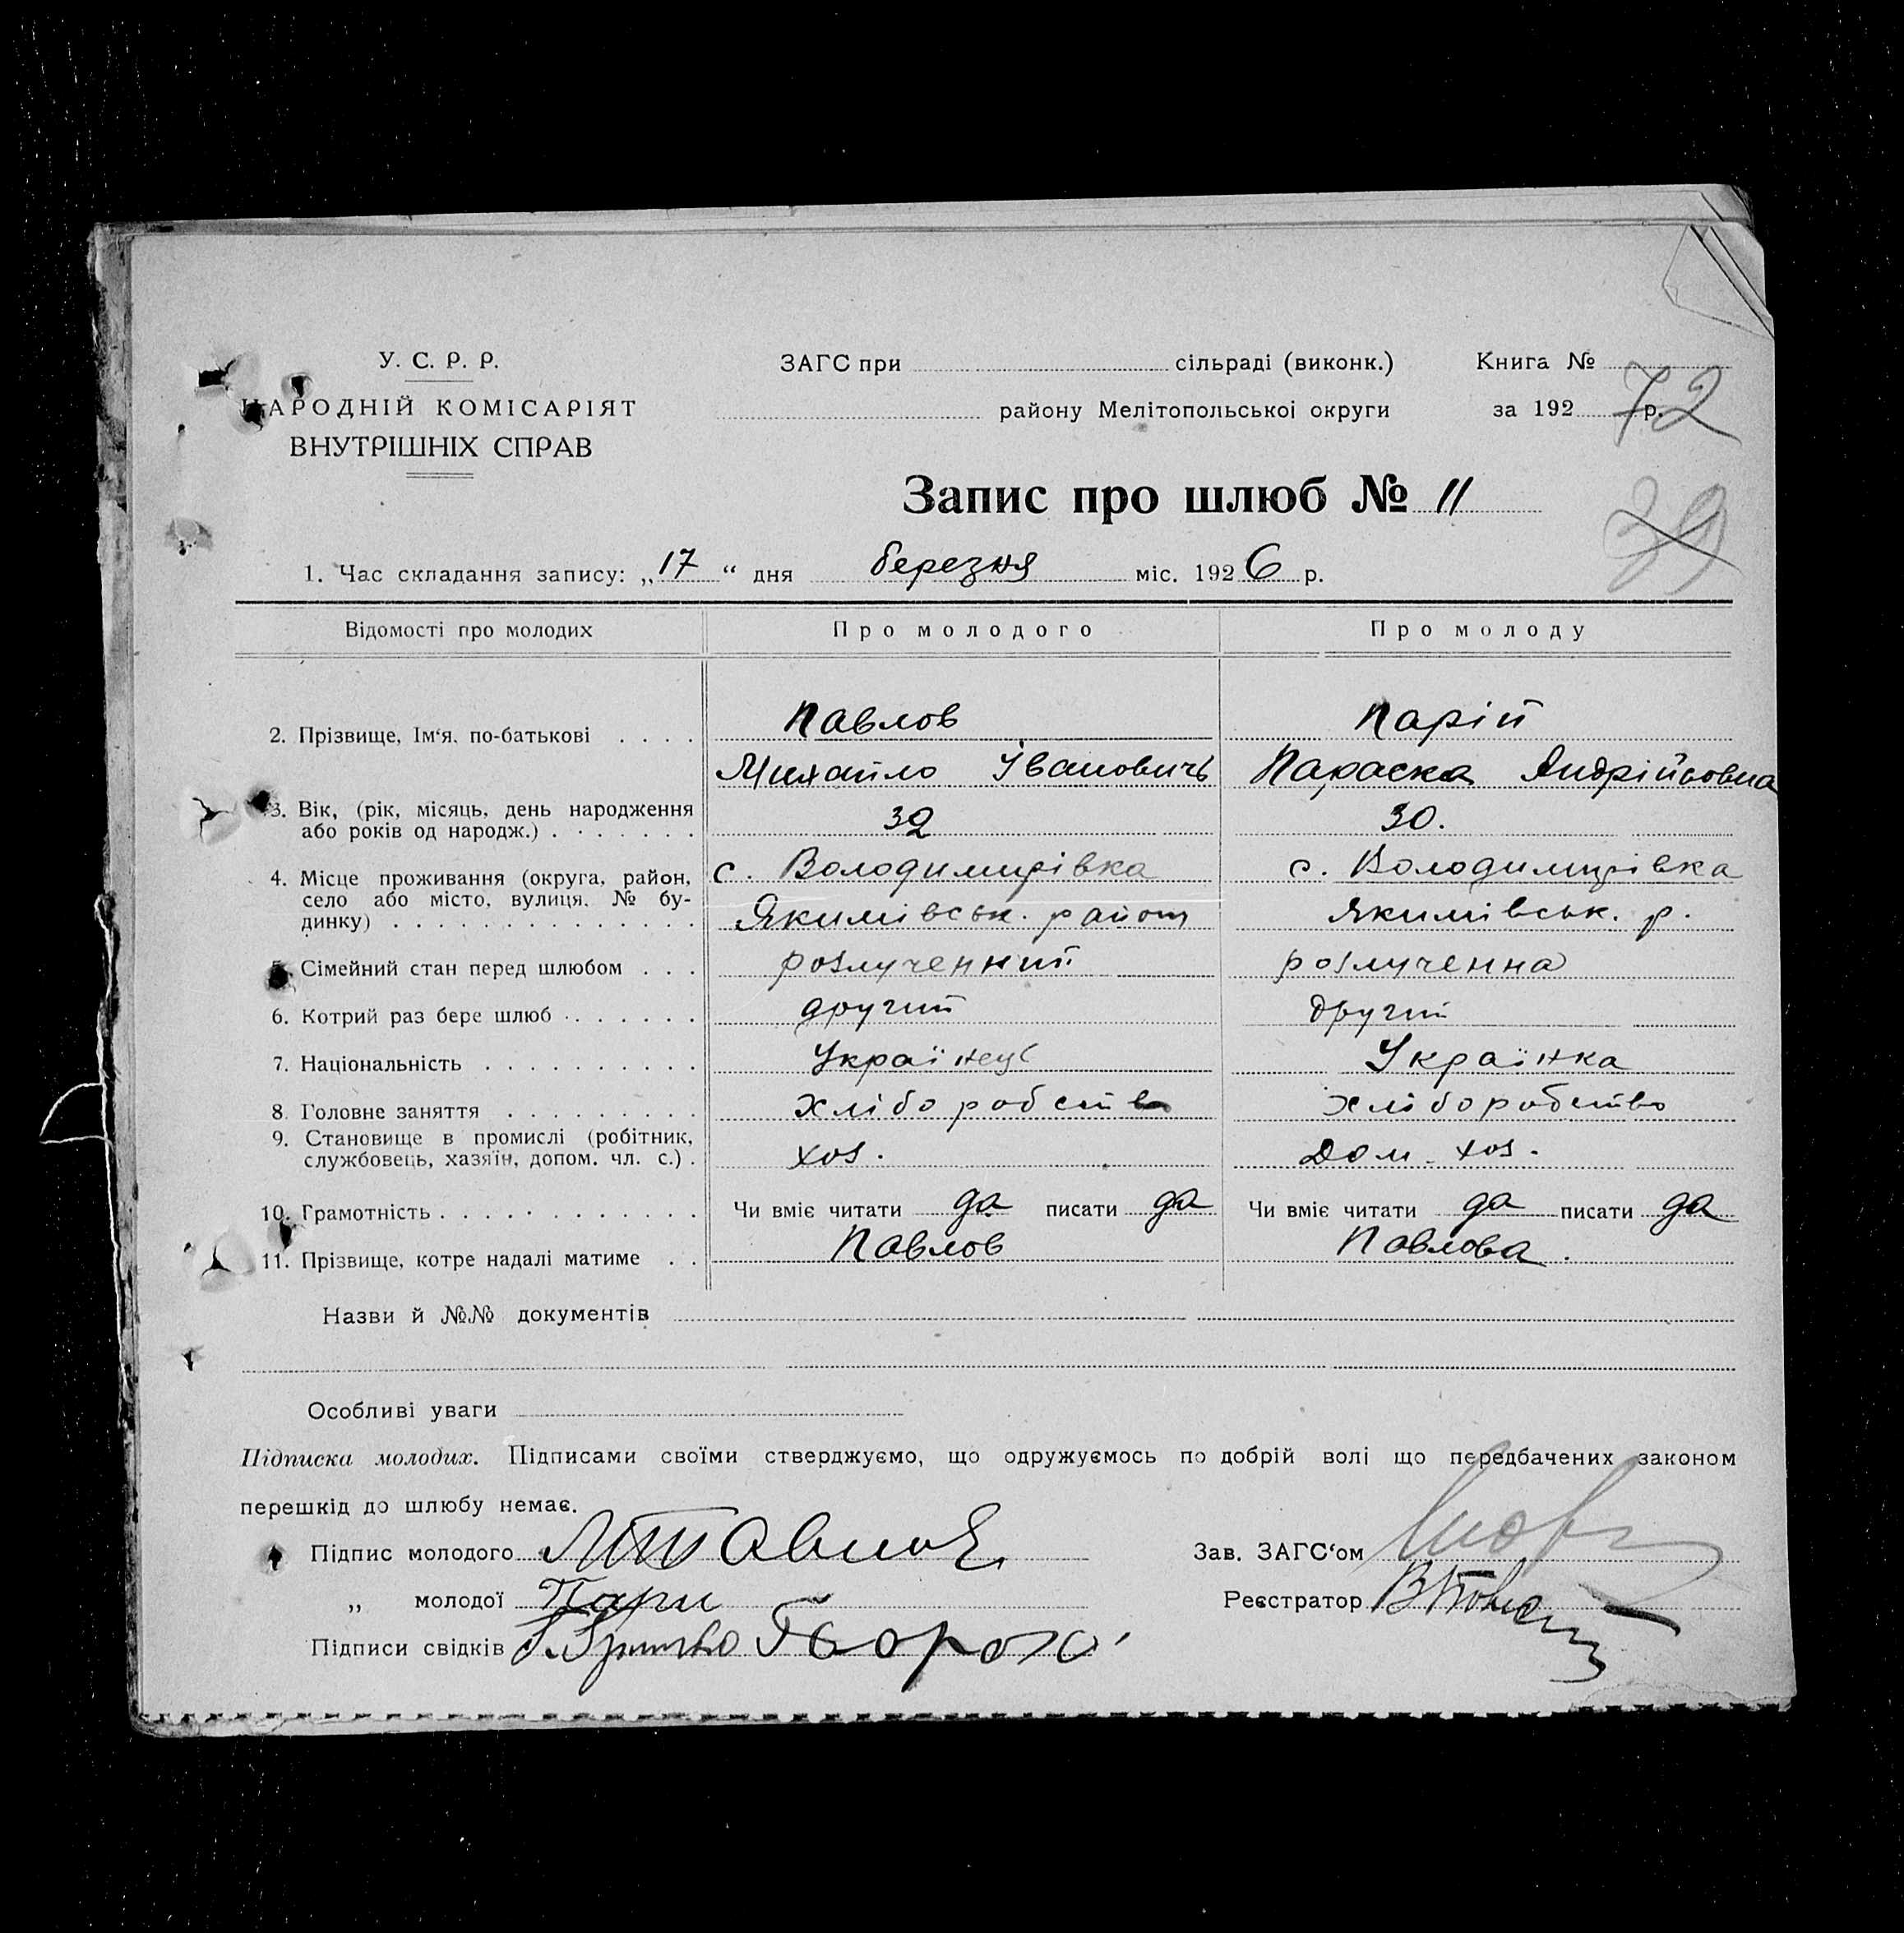 У. С. Р. Р.
НАРОДНІЙ КОМІСАРІЯТ
ВНУТРІШНІХ СПРАВ
ЗАГС при сільраді (виконк.)
району Мелітопольської округи
Книга №
за 192 р.
72
39
Запис про шлюб № 11
1. Час складання запису: „17“ дня березня міс. 1926 р.
Відомості про молодих Про молодого Про молоду
2. Прізвище, Ім‘я, по-батькові . . . . Павлов Парій
Михайло Івановичь Параска Андрійовна
3. Вік, (рік, місяць, день народження
або років од народж.) . . . . . . . 32 30.
4. Місце проживання (округа, район, с. Володимирівка с. Володимирівка
село або місто, вулиця, № бу-
динку) . . . . . . . . . . . . . . Якимівськ. район Якимівськ. р.
5. Сімейний стан перед шлюбом . . . розлученний розлученна
6. Котрий раз бере шлюб . . . . . . . другий другий
7. Національність . . . . . . . . . . Українець Українка
8. Головне заняття . . . . . . . . . хліборобство хліборобство
9. Становище в промислі (робітник,
службовець, хазяїн, допом. чл. с.) . хоз. Дом. хоз.
10. Грамотність . . . . . . . . . . . . Чи вміє читати да писати да Чи вміє читати да писати да
11. Прізвище, котре надалі матиме . . Павлов Павлова.
Назви й №№ документів
Особливі уваги
Підписка молодих. Підписами своїми стверджуємо, що одружуємось по добрій волі що передбачених законом
перешкід до шлюбу немає.
Підпис молодого
„ молодої Пари
Підписи свідків
Зав. ЗАГС‘ом
Реєстратор